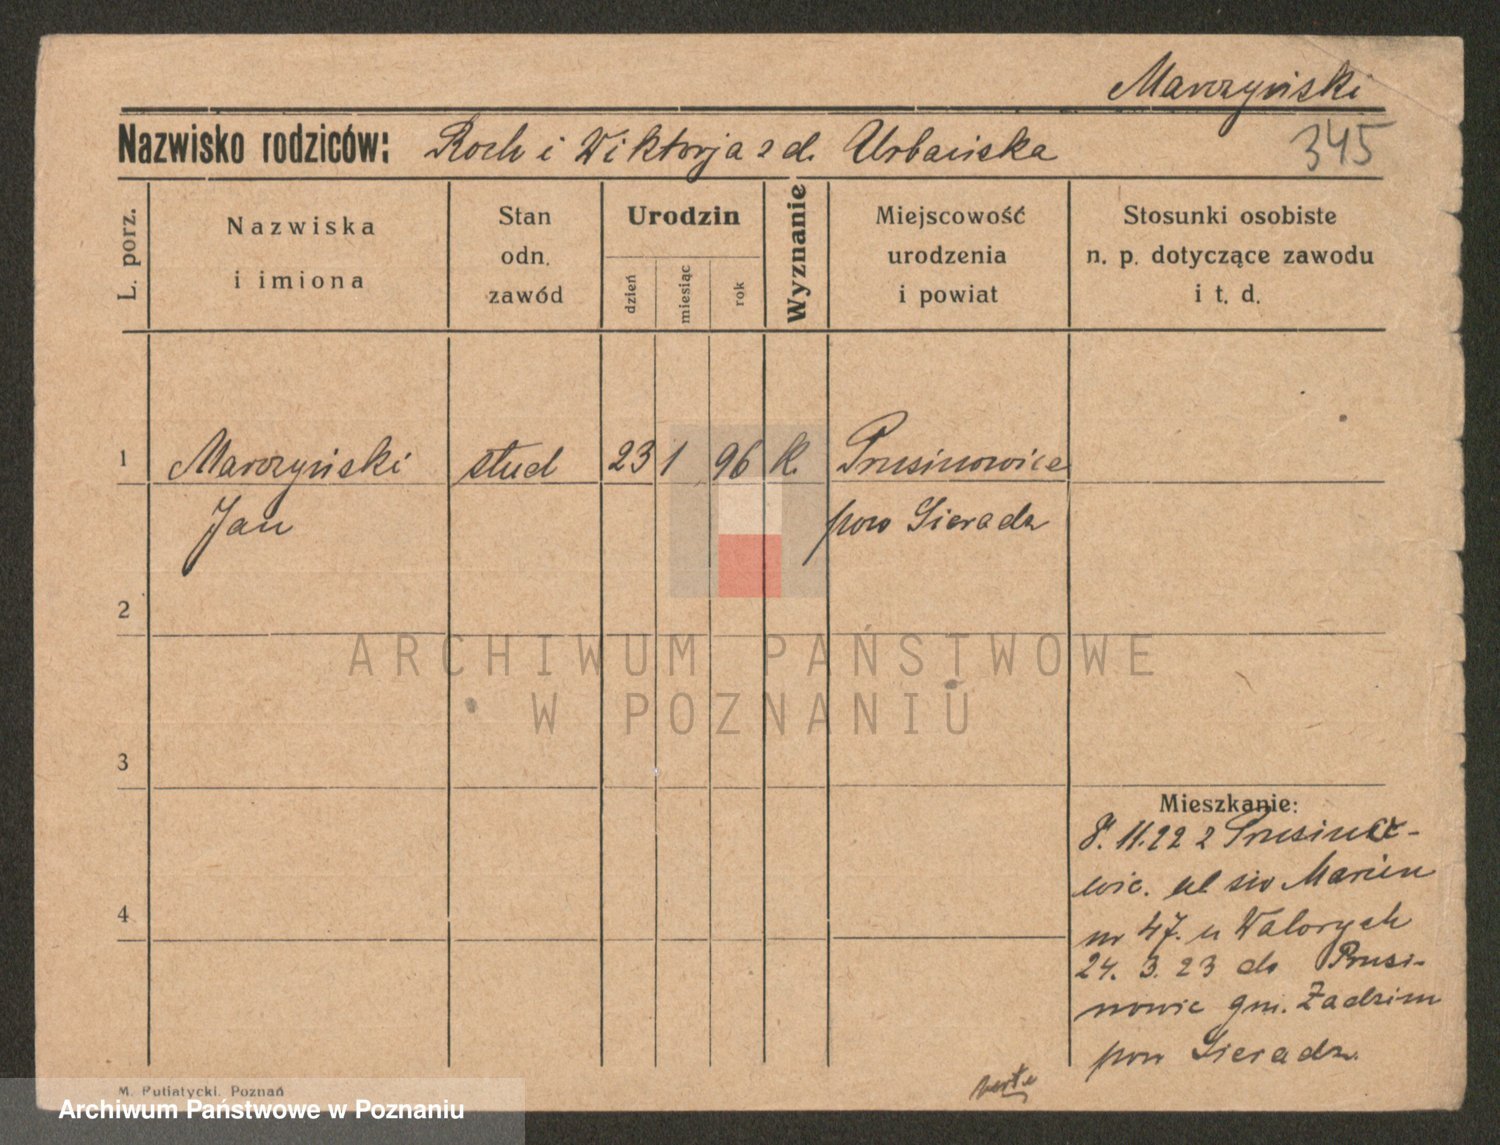 Marczyński
345
Nazwisko rodziców: Roch i Wiktorja z d. Urbańska
L. porz.
Nazwiska
i imiona
Stan
odn.
zawód
Urodzin
dzień
miesiąc
rok
Wyznanie
Miejscowość
urodzenia
i powiat
Stosunki osobiste
n. p. dotyczące zawodu
i t. d.
1 Marczyński stud 23 1 96 k. Prusinowice
Jan pow Sieradz
2
ARCHIWUM PAŃSTWOWE
W POZNANIU
3
Mieszkanie:
8. 11.22 z Prusino-
wic. ul św Marcin
nr 47. u Walorych
4
24. 3. 23 do Prusi-
nowic gm. Zadzim
pow Sieradz.
verte
M. Putiatycki, Poznań
Archiwum Państwowe w Poznaniu